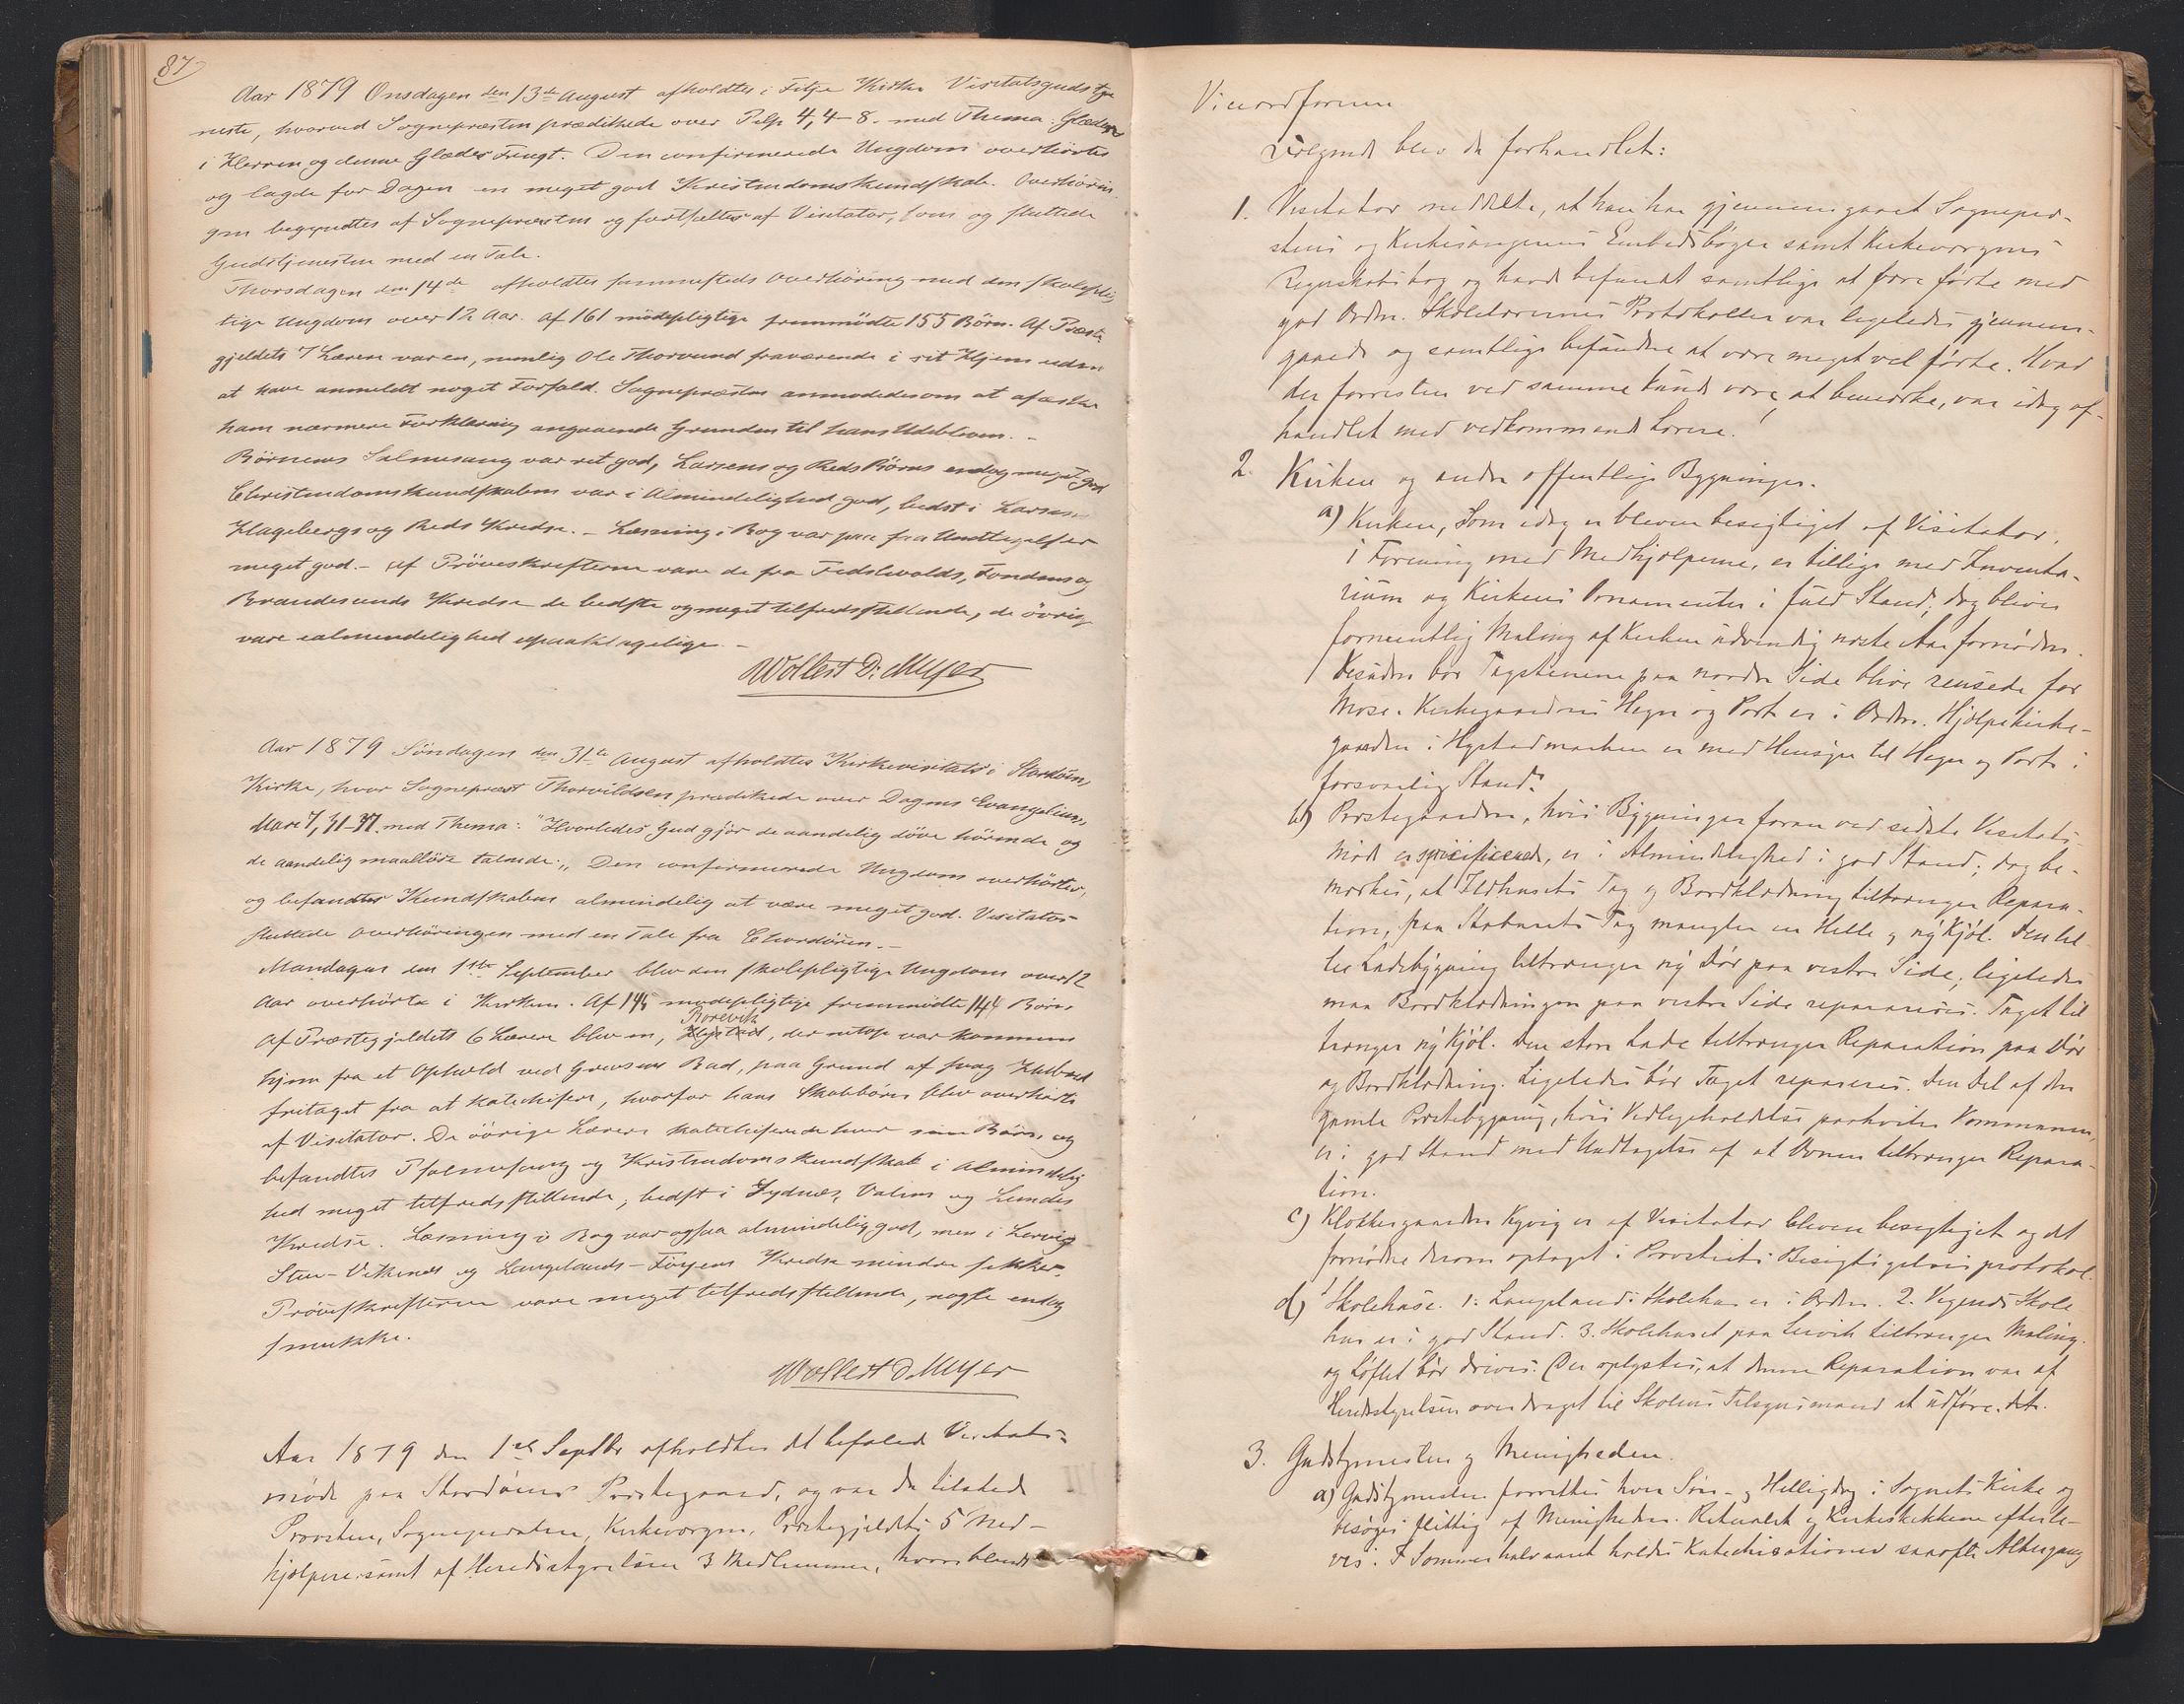 87
Aar 1879 Onsdagen den 13de August afholdtes i Fitje Kirke Visitatsgudstje
neste, hvorved Sognepræsten prædikede over Filp 4, 4–8. med Thema: Glæden
i Herren og denne Glædes Frugt. Den confirmerede Ungdom overhörtes
og lagde for Dagen en meget god Kristendomskundskab. Overhörin
gen begyndtes af Sognepræsten og fortsattes af Visitator, som og sluttede
Gudstjenesten med en Tale.
Thorsdagen den 14de afholdtes sammesteds Overhöring med den skoleplig
tige Ungdom over 12 Aar. Af 161 mödepligtige fremmödte 155 Börn. Af Præste
gjeldets 7 Lærere var en, nemlig Ole Thorsund fraværende i sit Hjem uden
at have anmeldt noget Forfald. Sognepræsten anmodedes om at afæske
ham nærmere Forklaring angaaende Grunden til hans Udebliven. –
Börnenes Salmesang var ret god, Larsens og Reds Börns endog meget god
Christendomskundskaben var i Almindelighed god, bedst i Larsens
Hagebergs og Reds Kredse. – Læsning i Bog var paa faa Undtagelser
meget god. – Af Pröveskrifterne vare de fra Fedshvolds, Tondens og
Brandesunds Kredse de bedste og meget tilfredsstillende, de övrige
vare i almindelighed upaaklagelige. –
Wollert D: Meyer
Aar 1879 Söndagen den 31te August afholdtes Kirkevisitats i Stordöens
Kirke, hvor Sognepræst Thorvildsen prædikede over Dagens Evangelium,
Marc 7, 31–37. med Thema: "Hvorledes Gud gjör de aandelig döve hörende og
de aandelig maallöse talende." Den confirmerede Ungdom overhörtes,
og befandtes Kundskaben almindelig at være meget god. Visitator
sluttede Overhöringen med en Tale fra Chordören. –
Mandagen den 1ste September blev den skolepligtige Ungdom over 12
Aar overhörte i Kirken. Af 146 mödepligtige fremmödte 144 Börn
Af Præstegjeldets 6 Lærere blev en, Borevik, der netop var kommen
hjem fra et Ophold ved Grevsens Bad, paa Grund af svag Helbred
fritaget fra at katechisere, hvorfor hans Skolebörn blev overhörte
af Visitator. De övrige Lærere katechiserede hver sine Börn, og
befandtes Psalmesang og Kristendomskundskab i Almindelig
hed meget tilfredsstillende, bedst i Sydnes, Valens og Lundes
Kredse. Læsning i Bog var ogsaa almindelig god, men i Lervig
Stue-Vikenes og Langelands-Föyens Kredse mindre sikker.
Pröveskrifterne vare meget tilfredsstillende, nogle endog
smukke.
Wollert D Meyer
Aar 1879 den 1ste Septbr afholdtes det befalede Visitats-
möde paa Stordöens Præstegaard, og var da tilstede
Provsten, Sognepræsten, Kirkeværgen, Præstegjeldets 5 Med-
hjælpere samt af Herredsstyrelsen 3 Medlemmer, hvoriblandt
Viceordføreren
Følgende blev da forhandlet:
1. Visitator meddelte, at han har gjennemgaaet Sognepræ-
stens og Kirkesangerens Embedsbøger samt Kirkeværgens
Regnskabsbog og havde befundet samtlige at være førte med
god Orden. Skolelærernes Protokoller var ligeledes gjennem-
gaaede og samtlige befundne at være meget vel førte. Hvad
der forresten ved samme kunde være at bemærke, var idag af-
handlet med vedkommende Lærere.
2. Kirken og andre offentlige Bygninger.
a) Kirken, som idag er bleven besigtiget af Visitator,
i Forening med Medhjelperne, er tillige med Inventa-
rium og Kirkens Ornamenter i fuld Stand; dog bliver
formentlig Maling af Kirken udvendig næste Aar fornøden.
Desuden bør Tagstenene paa nordre Side blive rensede for
Mose. Kirkegaardens Hegn og Port er i Orden. Hjelpekirke-
gaarden i Hystadmarken er med Hensyn til Hegn og Port i
forsvarlig Stand.
b) Præstegaarden, hvis Bygninger foran ved sidste Visitats-
møde er specificerede, er i Almindelighed i god Stand; dog be-
mærkes, at Ildhusets Tag og Bordklædning tiltrænger Repara-
tion, paa Staburets Tag mangler en Helle og ny Kjøl. Den lil-
le Ladebygning tiltrænger ny Dør paa vestre Side; ligeledes
maa Bordklædningen paa vestre Side repareres. Taget til
trænger ny Kjøl. Den store Lade tiltrænger Reparation paa Dør
og Bordklædning. Ligeledes bør Taget repareres. Den Del af den
gamle Præstebygning, hvis Vedligeholdelse paahviler Kommunen,
er i god Stand med Undtagelse af at Ovnen tiltrænger Repara-
tion.
c) Klokkergaarden Kyvig er af Visitator bleven besigtiget og det
fornødne derom optaget i Provstiets Besigtigelsesprotokol.
d) Skolehuse. 1. Langelands Skolehus er i Orden. 2. Vegends Skole
hus er i god Stand. 3. Skolehuset paa Lervik tiltrænger Maling.
og Loftet bør drives. Der oplystes, at denne Reparation var af
Herredsstyrelsen overdraget til Skolens Tilsynsmand at udføre det.
3. Gudstjenesten og Menigheden.
a) Gudstjenesten forrettes hver Søn- og Helligdag i Sognets Kirke og
besøges flittig af Menigheden. Ritualet og Kirkeskikkene efterle-
ves. I Sommerhalvaaret holdes Katechisationer saaofte Altergang